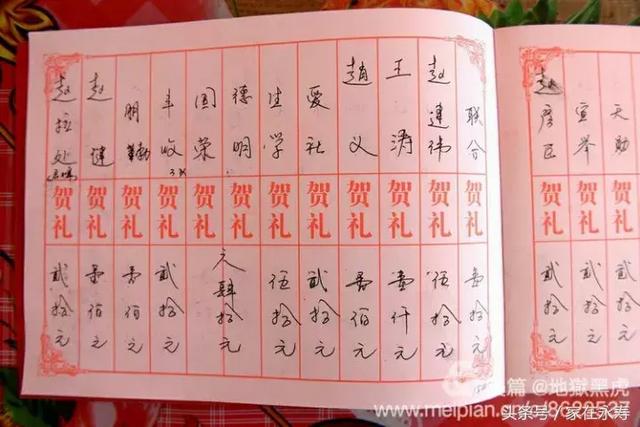 天助 贺礼 贰拾元
宣举 贺礼 贰拾元
赵 贺礼 贰拾元
联合 贺礼 拾元
赵建祎 贺礼 伍拾元
王涛 贺礼 壹仟元
赵义 贺礼 壹佰元
爱社 贺礼 贰拾元
生学 贺礼 伍拾元
德明 贺礼
国荣 贺礼 肆拾元
丰收 贺礼 贰拾元
朋勤 贺礼 壹佰元
赵健 贺礼 壹佰元
赵拉处 贺礼 贰拾元
篇 @地獄黑虎
www.meipian.cn/8629527
头条号/家在永寿